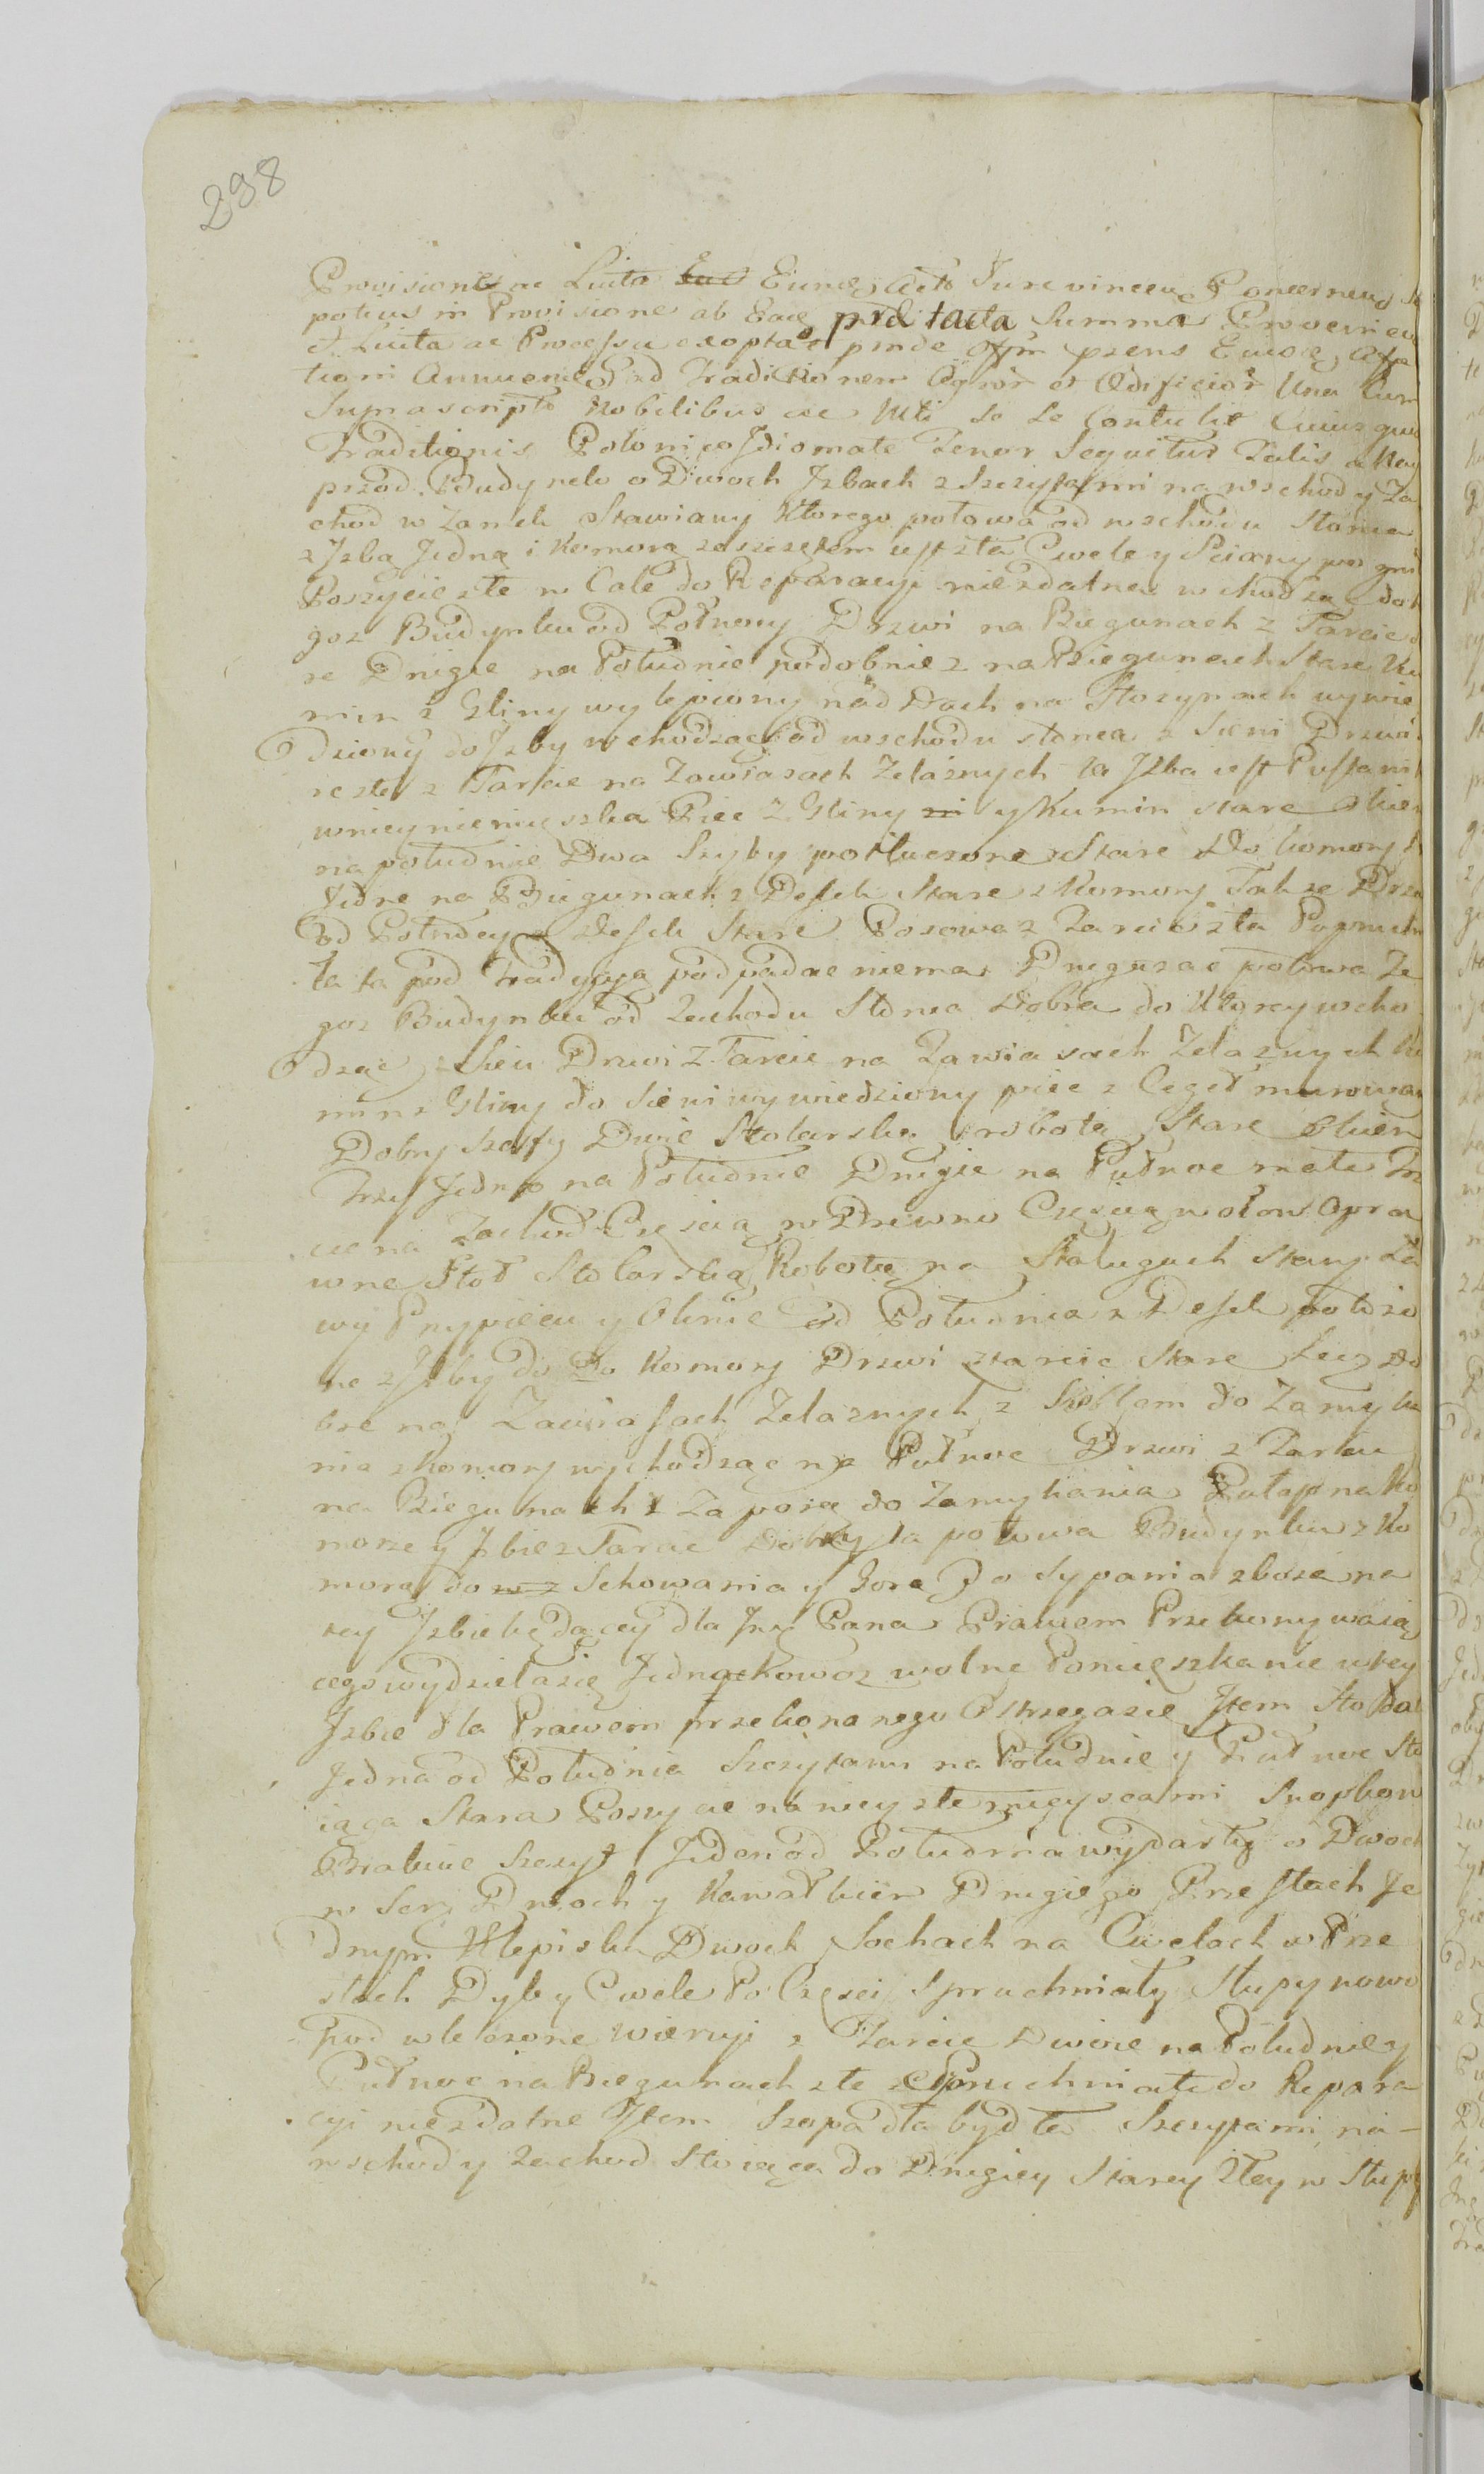 298
Provisiones ac Luita Eund Eiund Acto Jurevinceu Concernend
potius in Provisione ab Ead prd tacta Summa Provenien
et Luita ac Processu exopta pnde Offm prens Eiusd Affe
ctioni Annuend ad Traditionem Agror et Ædificior Una cum
Suprascripto Nobilibus ac Mti so Se Contulit Cuiusqu
Traditionis Polonico Idiomate Tenor Sequitur Talis a Nay
przod Budynek o Dwoch Izbach z Szczytami na wschod y Za
chod w Zamek Stawiany Ktorego połowa od wschodu Słonca
z Izbą Jedną i Komorą zeszczętem iest zła Cwele y Sciany po gni
Poszycie złe w Cale do Reparacyi niezdatne wchodząc do t
goz Budynku od Połnocy Drzwi na Biegunach z Tarcic
re Drugie na Południe podobniez na Biegunach Stare Ko
min z Gliny wylepiony nad Dach na Stozynach wywie
dziony do Izby wchodząc od wschodu słonca z Sieni Drzwi
re złe z Tarcic na Zawiasach Zelaznych ta Izba iest Pusta ni
wniey niemięszka Piec z Gliny ni y Kumin stare Okien
na południe Dwa Szyby potłuczone Stare Do komory
Jedne na Biegunach z Desek Stare z Komory Takze Drz
od Połnocy z Desek Stare Posowa z Tarcic zła Popruchn
ła ta pod Tradycyą podpadac niema Druga zas połowa Te
goz Budynku od Zachodu Słonca Dobra do Ktorey wcho
dząc z Sieni Drzwi z Tarcic na Zawiasach Zelaznych Ko
min z Gliny do Sieni wywiedziony piec z Cegeł murowan
Dobry Szafy Dwie Stolarską robotą Stare Okien
Trzy Jedno na Południe Drugie na Pułnoc małe Trz
cie na Zachod Częscią w Drewno Częscią wołow opra
wne Stoł Stolarską Robotą na Stalugach Stary Ła
wy Przypiecu y Oknie od Południa z Desek połozo
ne z Izby do Do Komory Drzwi z tarcic Stare Lecz do
bre na Zawiasach Zelaznych z Skoblem do Zamyka
nia z Komory wychodząc na Pułnoc Drzwi z Tarcic
na Biegunach z Zaporą do Zamykania Pułap na Ko
morze y Izbie z Tarcic Dobry ta połowa Budynku z Ko
morą do w z Schowania y Gorą Do Sypania zboza na
tey Izbie będącey dla Jmc Pana Prawem Przekonywaią
cego wydziela się Jednakowoz wolne Pomięszkanie wtey
Izbie dla Prawem przekonanego Ostrzega się Item Stodoła
Jedna od Południa Szczytami na Południe y Pułnoc Sto
iąca Stara Poszycie na niey złe mięyscami Snopkow
Brakuie Szczyt Jeden od Południa wydarty o Dwoch
w Serz Dwoch y Kawałkiem Drugiego Przestach Je
dnym Klepisku Dwoch Sochach na Cwelach w Prze
stach Dyby Cwele Po Częsci Spruchniały Słupy nowo
pod wleczone wieruje z Tarcic Dwoie na Południe y
Pułnoc na Biegunach złe Spruchniałe do Repara
cyi niezdatne Item Szopa dla bydła Szczytami na-
wschod y Zachod Stoiąca do Drugiey Starey Złey w Słupy